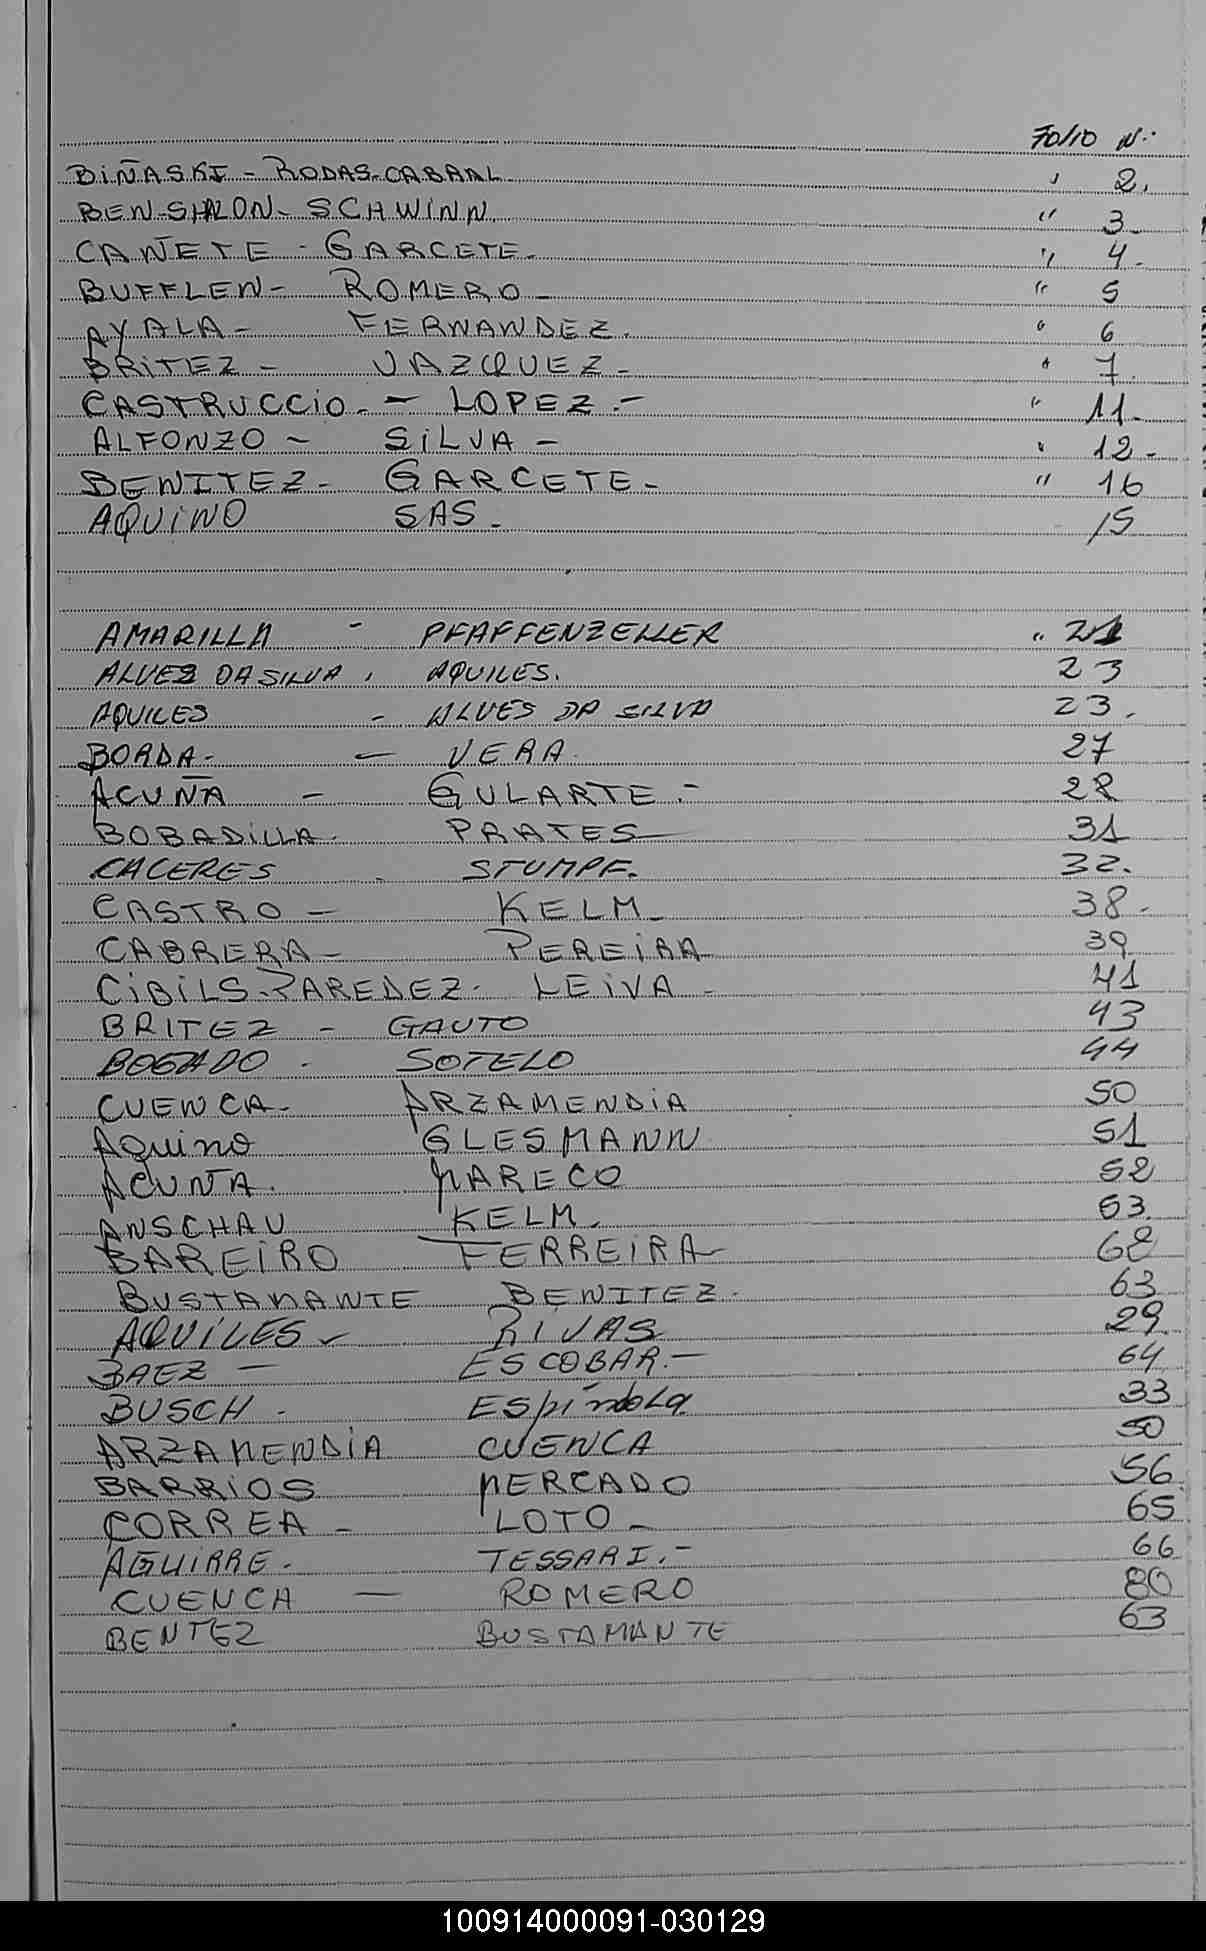 FOLIO N:
BIÑASKI - RODAS-CABRAL ' 2.
BEN-SHALON- SCHWINN " 3-
CAÑETE - GARCETE- " 4-
BUFFLEN- ROMERO - " 5
AYALA- FERNANDEZ. " 6
BRITEZ - VAZQUEZ- " 7.
CASTRUCCIO. - LOPEZ.- " 11-
ALFONZO - SILVA - " 12-
BENITEZ- GARCETE- " 16
AQUINO SAS- 15
AMARILLA - PFAFFENZELLER " 21
ALVES DA SILVA , AQUILES. 23
AQUILES - ALVES DA SILVA 23.
BORDA- - VERA. 27
ACUÑA - GULARTE.- 28
BOBADILLA- PRATES- 31
CACERES - STUMPF. 32.
CASTRO - KELM- 38-
CABRERA- PEREIRA 39
CIBILS-PAREDEZ- LEIVA - 41
BRITEZ - GAUTO 43
BOGADO - SOTELO 44
CUENCA- ARZAMENDIA 50
Aquino GLESMANN 51
ACUÑA. MARECO 52
ANSCHAU KELM. 53
BAREIRO FERREIRA- 62
BUSTAMANTE BENITEZ. 63
AQUILES- RIVAS 29
BAEZ - ESCOBAR.- 64
BUSCH - ESpíndoLa 33
ARZAMENDIA CUENCA 50
BARRIOS MERCADO 56
CORREA - LOTO - 65
AGUIRRE. TESSARI.- 66
CUENCA - ROMERO 80
BENTEZ BUSTAMANTE 63
100914000091-030129